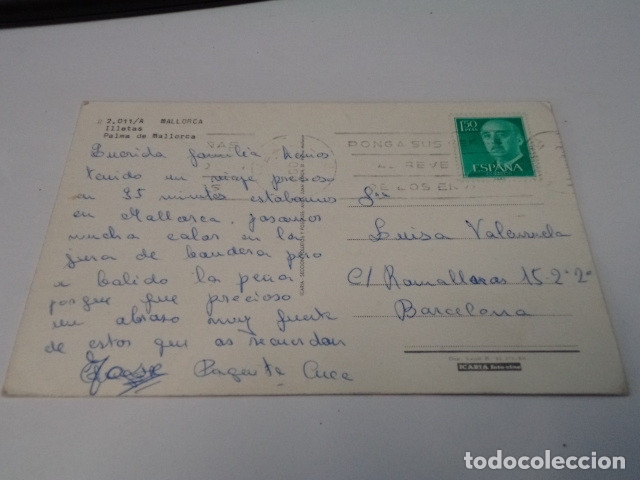 2.011/A MALLORCA
Illetas
Palma de Mallorca
Querida familia hemos
tenido un viaje precioso
en 35 minutos estabamos
en Mallorca, pasamos
mucha calor en la
jura de bandera pero
a balido la pena
porque fue precioso
un abraso muy fuerte
de estos que os recuerdan
Paquita
PONGA SUS
AL REVE
DE LOS ENV
1,50
PTAS
ESPAÑA
Luisa Valenzuela
C/ Ramalleras 15-2º2ª
Barcelona
ICARIA
todocoleccion.net